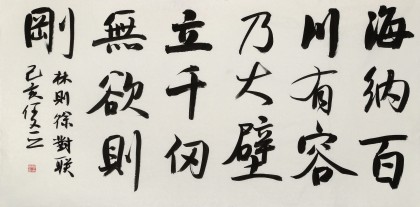 海納百
川有容
乃大壁
立千仞
無欲則
剛
林則徐對联
己亥